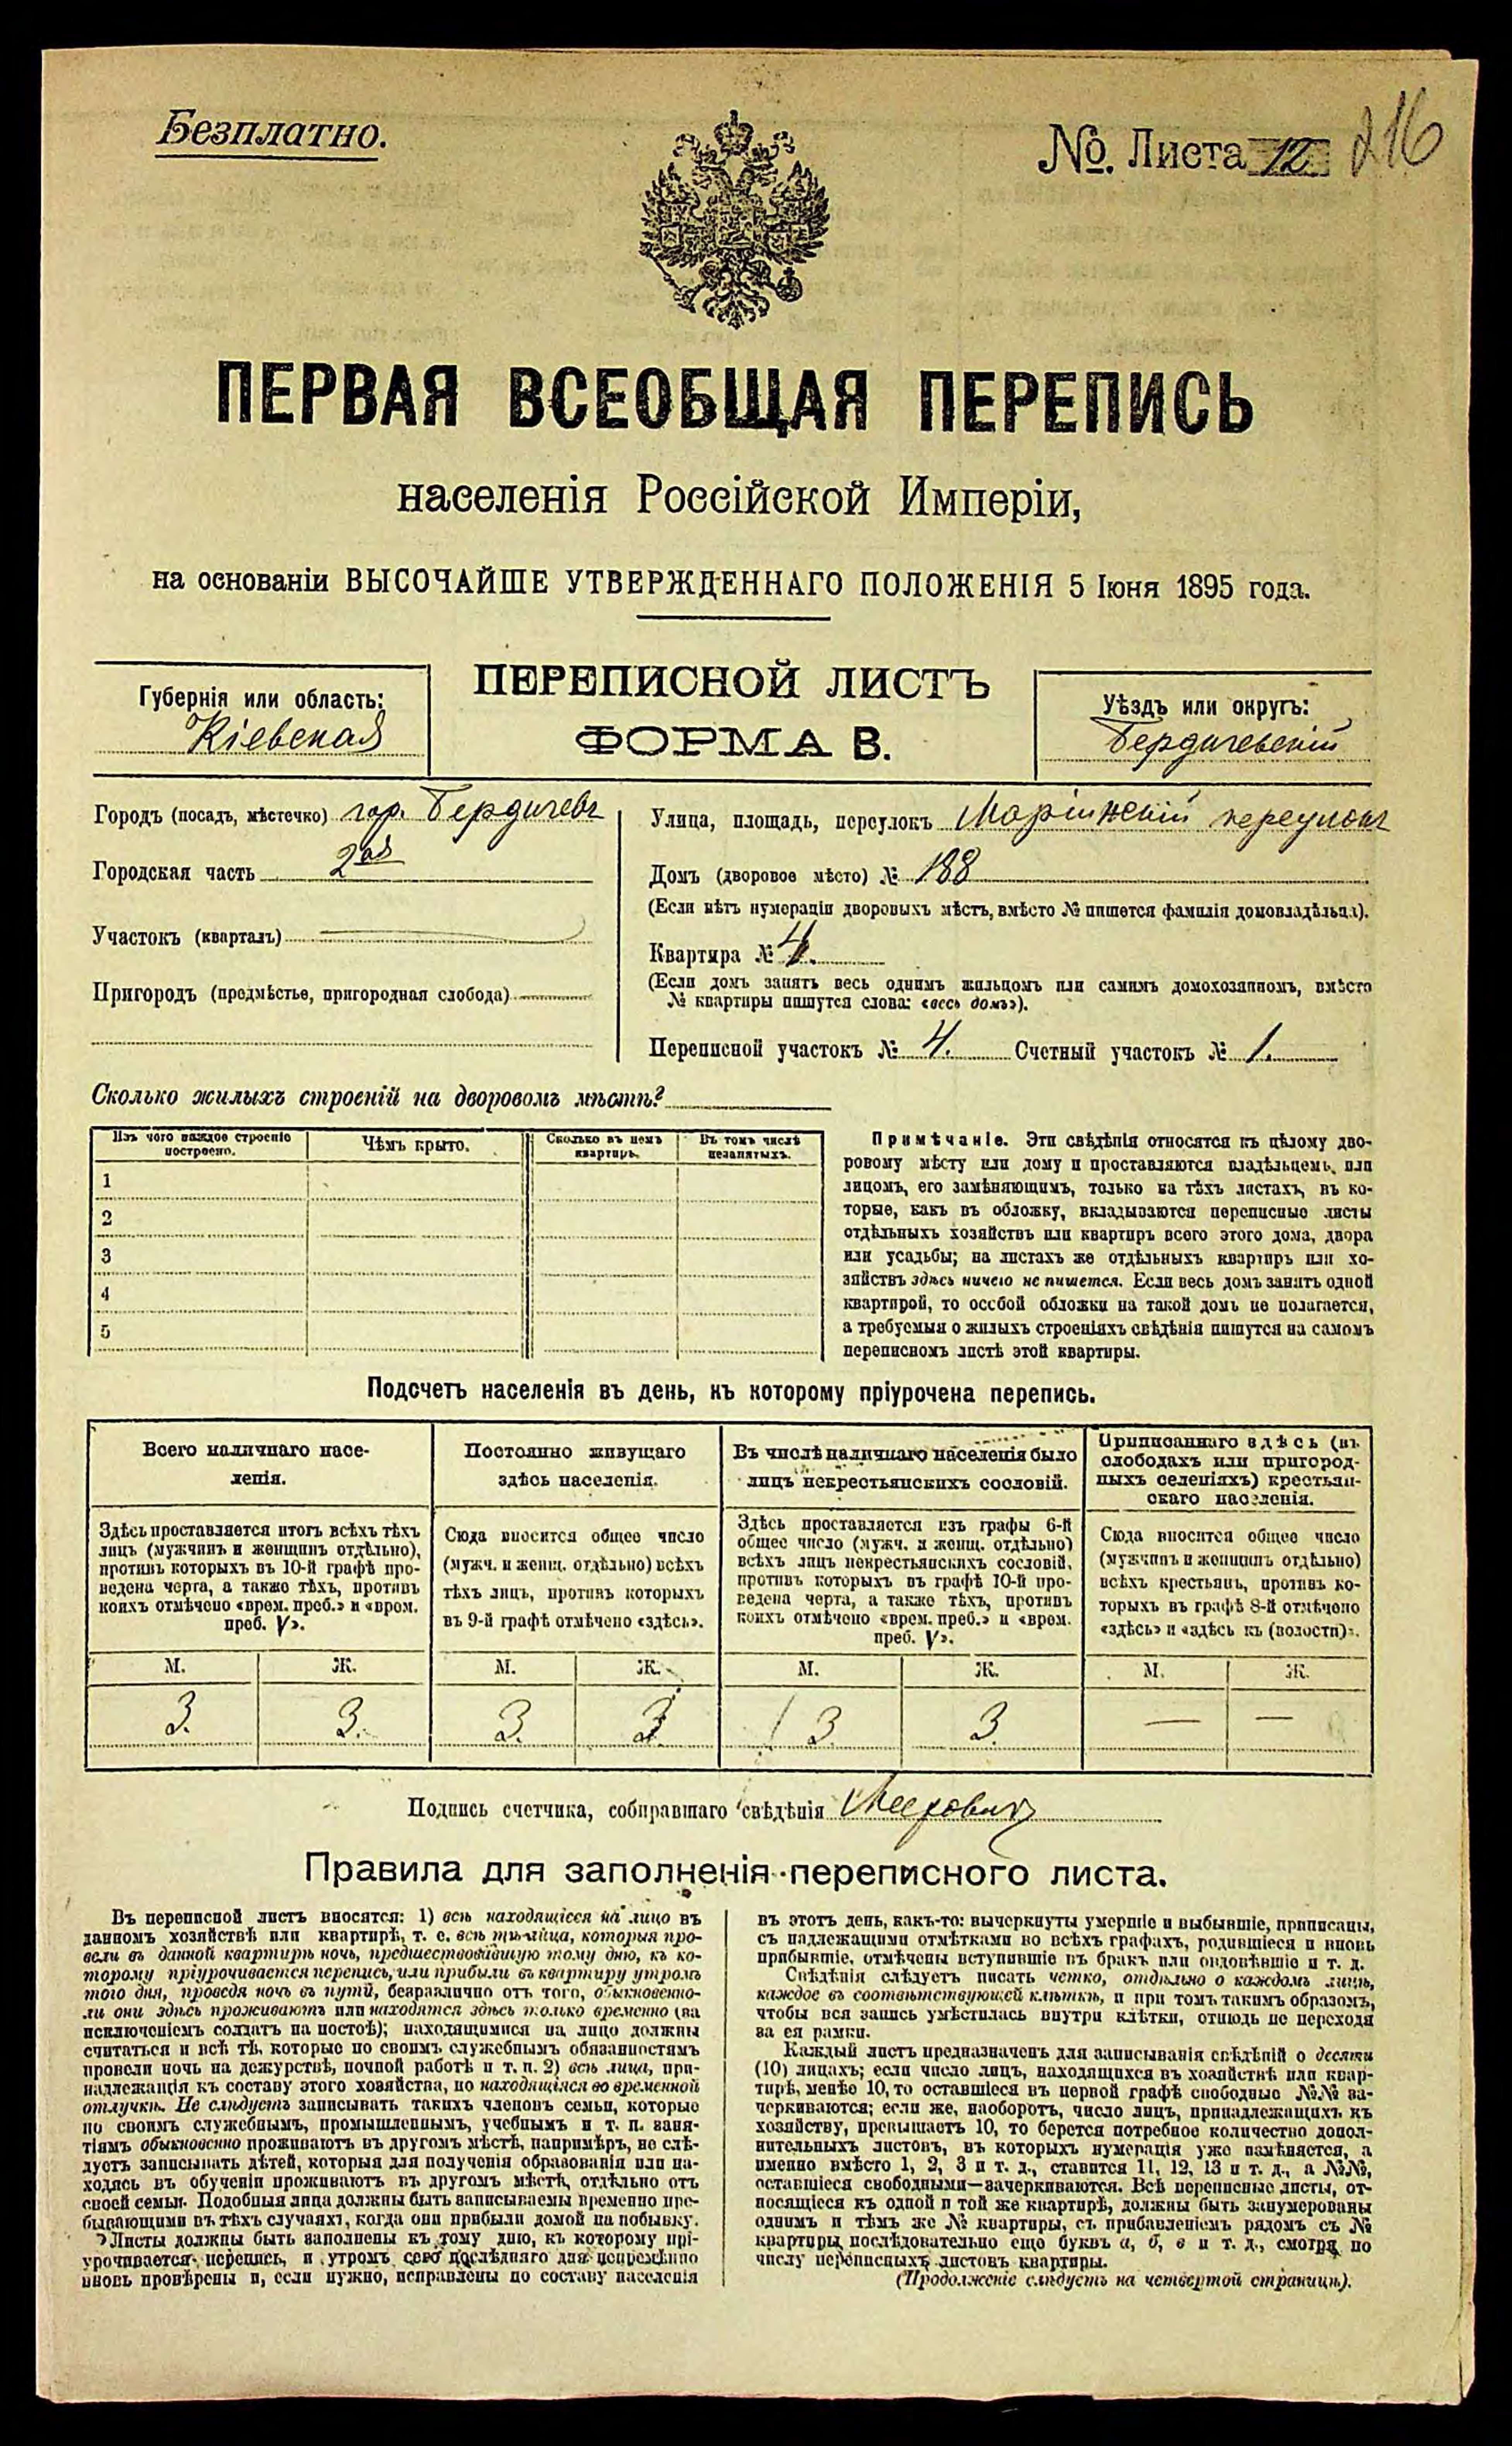 Безплатно.
№. Листа 12 216
ПЕРВАЯ ВСЕОБЩАЯ ПЕРЕПИСЬ
населенія Россійской Имперіи,
на основаніи ВЫСОЧАЙШЕ УТВЕРЖДЕННАГО ПОЛОЖЕНІЯ 5 Іюня 1895 года.
Губернія или область:
Кіевская
ПЕРЕПИСНОЙ ЛИСТЪ
ФОРМА В.
Уѣздъ или округъ:
Бердичевскій
Городъ (посадъ, мѣстечко) гор. Бердичевъ
Городская часть 2ая
Участокъ (кварталъ)
Пригородъ (предмѣстье, пригородная слобода)
Улица, площадь, переулокъ Маріинскій переулокъ
Домъ (дворовое мѣсто) № 188
(Если нѣтъ нумераціи дворовыхъ мѣстъ, вмѣсто № пишется фамилія домовладѣльца).
Квартира № 4.
(Если домъ занятъ весь однимъ жильцомъ или самимъ домохозяиномъ, вмѣсто
№ квартиры пишутся слова: «весь домъ»).
Переписной участокъ № 4. Счетный участокъ № 1.
Сколько жилыхъ строеній на дворовомъ мѣстѣ?
Изъ чего каждое строеніе
построено.
Чѣмъ крыто.
Сколько въ немъ
квартиръ.
Въ томъ числѣ
незанятыхъ.
1
2
3
4
5
Примѣчаніе. Эти свѣдѣнія относятся къ цѣлому дво-
ровому мѣсту или дому и проставляются владѣльцемъ, или
лицомъ, его замѣняющимъ, только на тѣхъ листахъ, въ ко-
торые, какъ въ обложку, вкладываются переписные листы
отдѣльныхъ хозяйствъ или квартиръ всего этого дома, двора
или усадьбы; на листахъ же отдѣльныхъ квартиръ или хо-
зяйствъ здѣсь ничего не пишется. Если весь домъ занятъ одной
квартирой, то особой обложки на такой домъ не полагается,
а требуемыя о жилыхъ строеніяхъ свѣдѣнія пишутся на самомъ
переписномъ листѣ этой квартиры.
Подсчетъ населенія въ день, къ которому пріурочена перепись.
Всего наличнаго насе-
ленія.
Здѣсь проставляется итогъ всѣхъ тѣхъ
лицъ (мужчинъ и женщинъ отдѣльно),
противъ которыхъ въ 10-й графѣ про-
ведена черта, а также тѣхъ, противъ
коихъ отмѣчено «врем. преб.» и «врем.
преб. V».
Постоянно живущаго
здѣсь населенія.
Сюда вносится общее число
(мужч. и женщ. отдѣльно) всѣхъ
тѣхъ лицъ, противъ которыхъ
въ 9-й графѣ отмѣчено «здѣсь».
Въ числѣ наличнаго населенія было
лицъ некрестьянскихъ сословій.
Здѣсь проставляется изъ графы 6-й
общее число (мужч. и женщ. отдѣльно)
всѣхъ лицъ некрестьянскихъ сословій,
противъ которыхъ въ графѣ 10-й про-
ведена черта, а также тѣхъ, противъ
коихъ отмѣчено «врем. преб.» и «врем.
преб. V».
Приписаннаго здѣсь (въ
слободахъ или пригород-
ныхъ селеніяхъ) крестьян-
скаго населенія.
Сюда вносится общее число
(мужчинъ и женщинъ отдѣльно)
всѣхъ крестьянъ, противъ ко-
торыхъ въ графѣ 8-й отмѣчено
«здѣсь» и «здѣсь къ (волости)».
М. Ж. М. Ж. М. Ж. М. Ж.
3. 3. 3. 3 3. 3. — —
Подпись счетчика, собиравшаго свѣдѣнія Меерович
Правила для заполненія переписного листа.
Въ переписной листъ вносятся: 1) всѣ находящіеся на лицо въ
данномъ хозяйствѣ или квартирѣ, т. е. всѣ тѣ лица, которыя про-
вели въ данной квартирѣ ночь, предшествовавшую тому дню, къ ко-
торому пріурочивается перепись, или прибыли въ квартиру утромъ
того дня, проведя ночь въ пути, безразлично отъ того, обыкновенно-
ли они здѣсь проживаютъ или находятся здѣсь только временно (за
исключеніемъ солдатъ на постоѣ); находящимися на лицо должны
считаться и всѣ тѣ, которые по своимъ служебнымъ обязанностямъ
провели ночь на дежурствѣ, ночной работѣ и т. п. 2) всѣ лица, при-
надлежащія къ составу этого хозяйства, но находящіяся во временной
отлучкѣ. Не слѣдуетъ записывать такихъ членовъ семьи, которые
по своимъ служебнымъ, промышленнымъ, учебнымъ и т. п. заня-
тіямъ обыкновенно проживаютъ въ другомъ мѣстѣ, напримѣръ, не слѣ-
дуетъ записывать дѣтей, которыя для полученія образованія или на-
ходясь въ обученіи проживаютъ въ другомъ мѣстѣ, отдѣльно отъ
своей семьи. Подобныя лица должны быть записываемы временно пре-
бывающими въ тѣхъ случаяхъ, когда они прибыли домой на побывку.
Листы должны быть заполнены къ тому дню, къ которому прі-
урочивается перепись, и утромъ сего послѣдняго дня непремѣнно
вновь провѣрены и, если нужно, исправлены по составу населенія
въ этотъ день, какъ-то: вычеркнуты умершіе и выбывшіе, приписаны,
съ надлежащими отмѣтками во всѣхъ графахъ, родившіеся и вновь
прибывшіе, отмѣчены вступившіе въ бракъ или овдовѣвшіе и т. д.
Свѣдѣнія слѣдуетъ писать четко, отдѣльно о каждомъ лицѣ,
каждое въ соотвѣтствующей клѣткѣ, и при томъ такимъ образомъ,
чтобы вся запись умѣстилась внутри клѣтки, отнюдь не переходя
за ея рамки.
Каждый листъ предназначенъ для записыванія свѣдѣній о десяти
(10) лицахъ; если число лицъ, находящихся въ хозяйствѣ или квар-
тирѣ, менѣе 10, то оставшіеся въ первой графѣ свободные №№ за-
черкиваются; если же, наоборотъ, число лицъ, принадлежащихъ къ
хозяйству, превышаетъ 10, то берется потребное количество допол-
нительныхъ листовъ, въ которыхъ нумерація уже измѣняется, а
именно вмѣсто 1, 2, 3 и т. д., ставится 11, 12, 13 и т. д., а №№,
оставшіеся свободными—зачеркиваются. Всѣ переписные листы, от-
носящіеся къ одной и той же квартирѣ, должны быть занумерованы
однимъ и тѣмъ же № квартиры, съ прибавленіемъ рядомъ съ №
квартиры послѣдовательно еще буквъ а, б, в и т. д., смотря по
числу переписныхъ листовъ квартиры.
(Продолженіе слѣдуетъ на четвертой страницѣ).